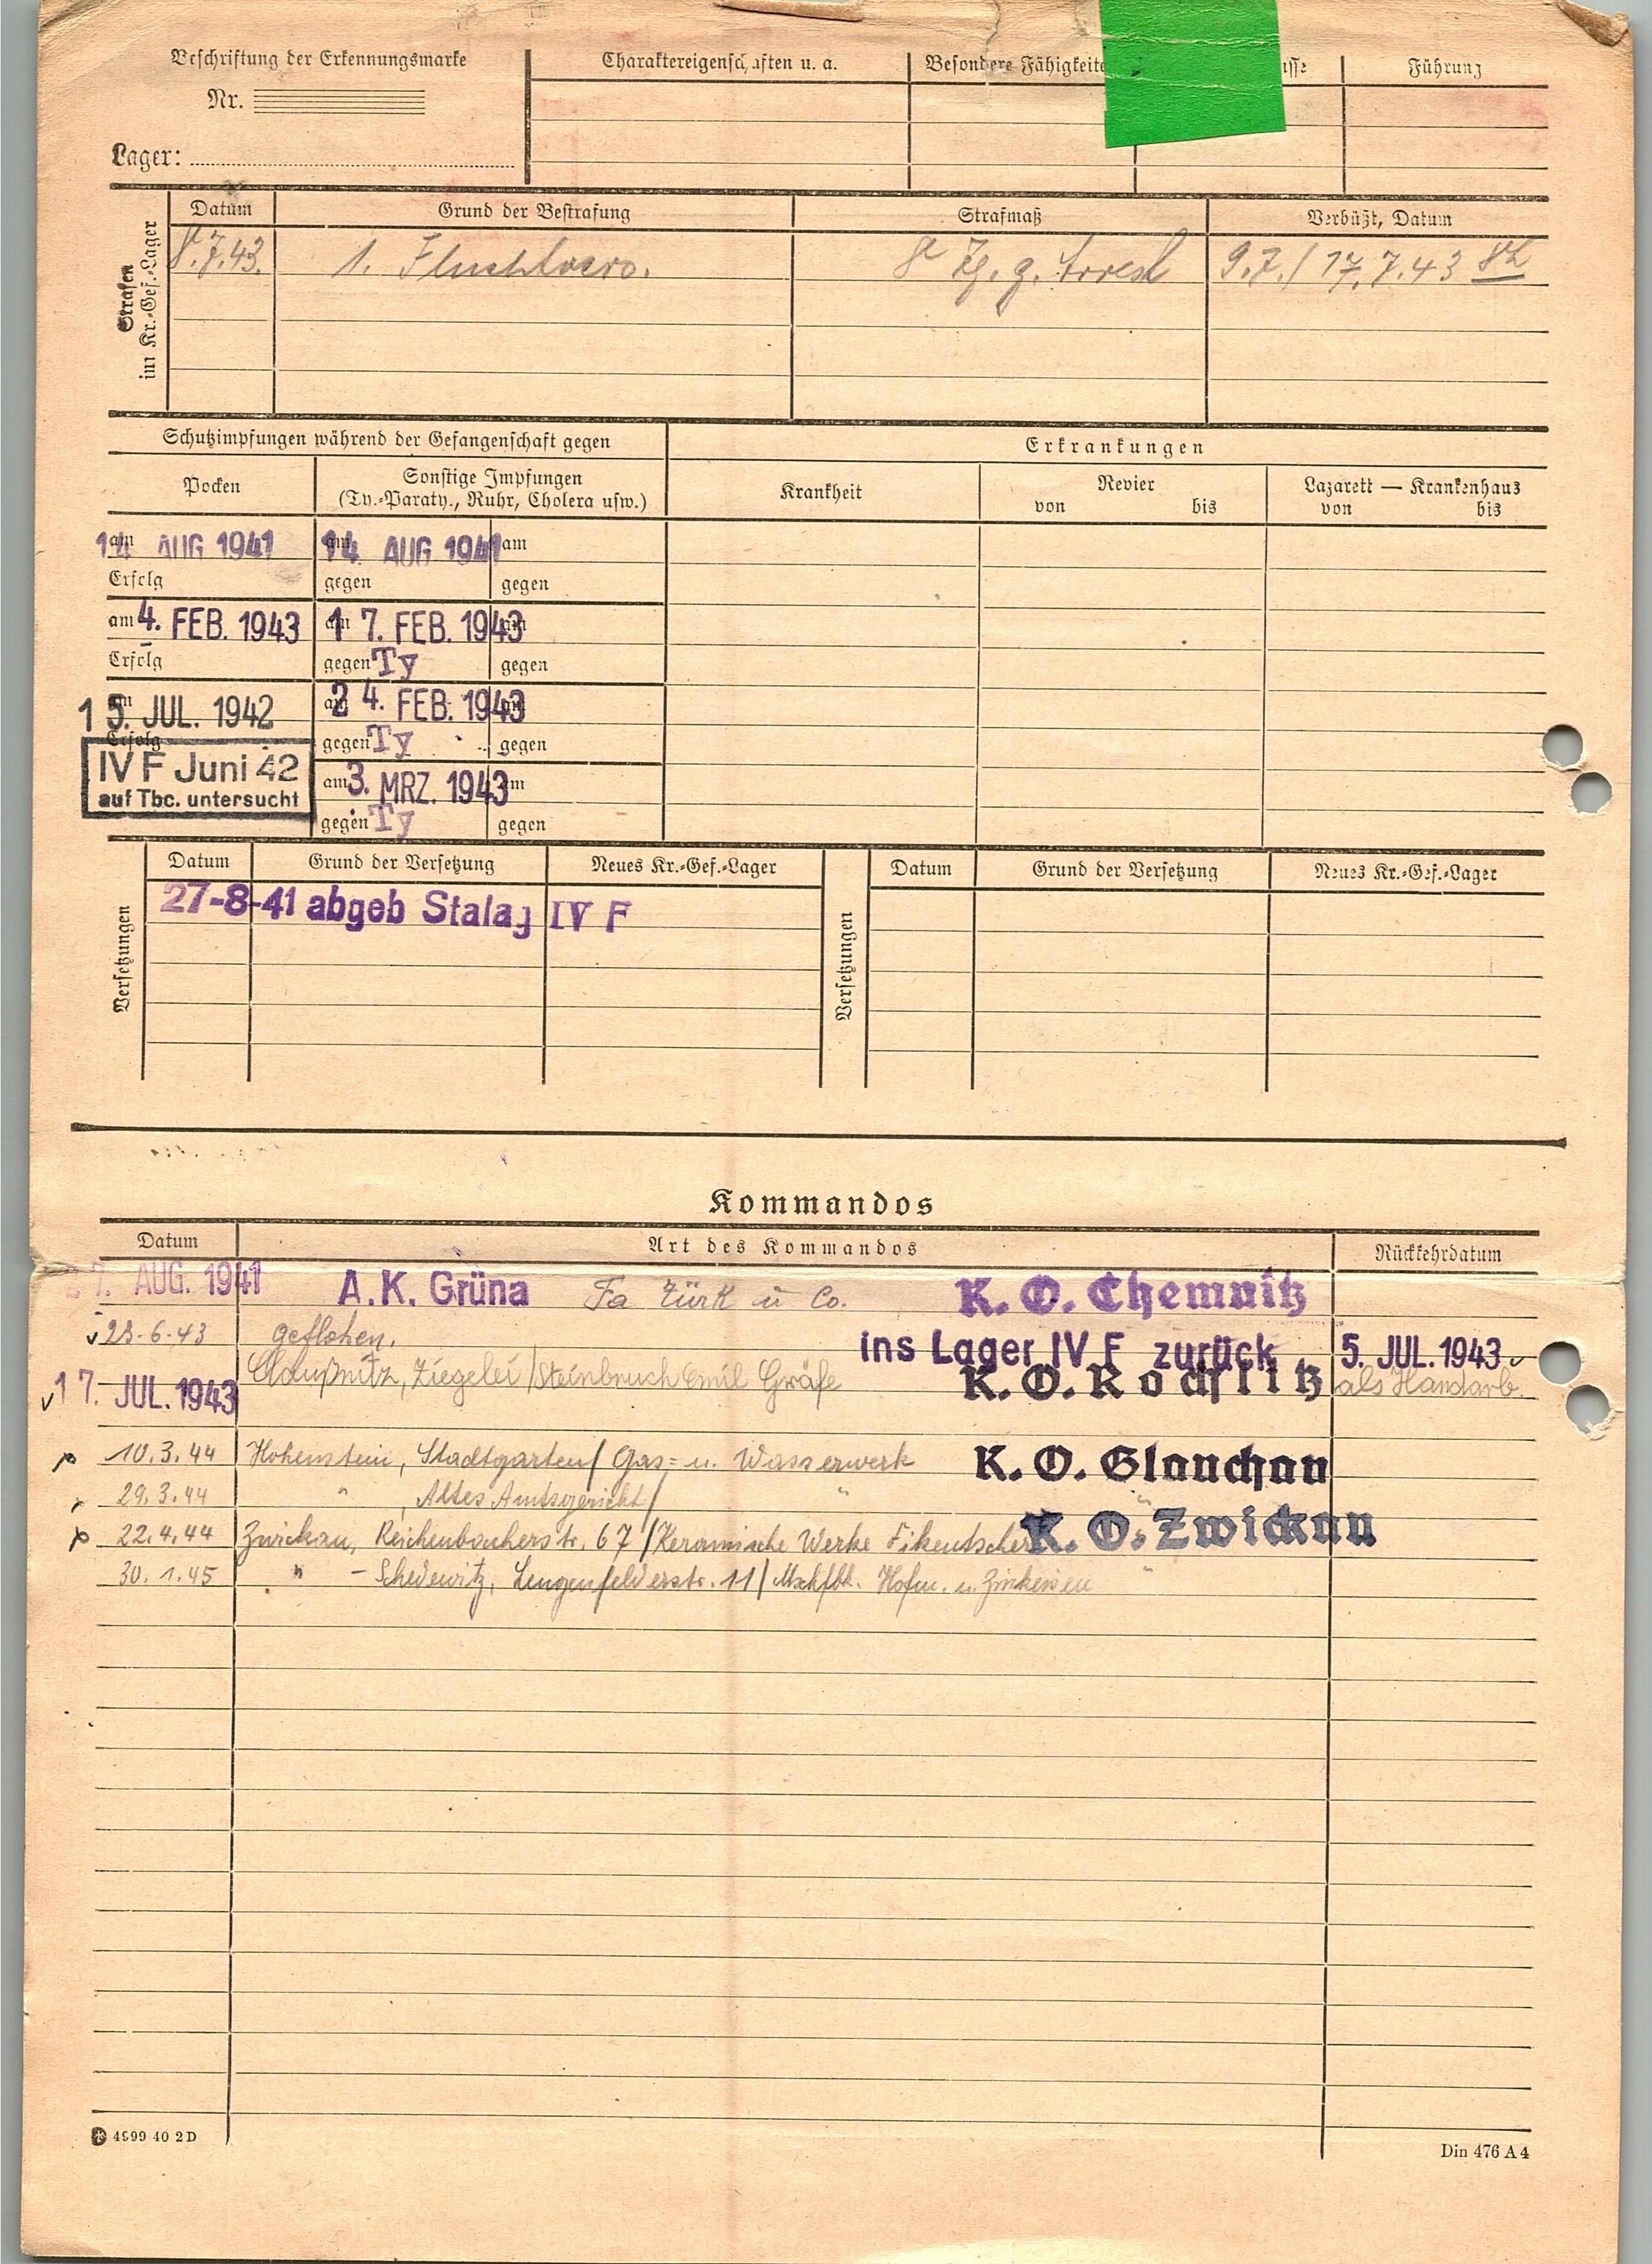 Beschriftung der Erkennungsmarke
Nr.
Lager:
Charaktereigenschaften u. a.
Besondere Fähigkeite
sse
Führung
Strafen
im Kr.-Gef.-Lager
Datum
Grund der Bestrafung
Strafmaß
Verbüßt, Datum
8.7.43.
1. Fluchtvers.
8 Tg. g. Arrest
9.7./17.7.43 8h
Schutzimpfungen während der Gefangenschaft gegen
Erkrankungen
Pocken
Sonstige Impfungen
(Ty.-Paraty., Ruhr, Cholera usw.)
Krankheit
Revier
von bis
Lazarett — Krankenhaus
von bis
am 14 AUG 1941
am 14. AUG 1941
am
Erfolg
gegen
gegen
am 4. FEB. 1943
am 17. FEB. 1943
am
Erfolg
gegen Ty
gegen
am 15. JUL. 1942
am 24. FEB. 1943
am
Erfolg
gegen Ty
gegen
IV F Juni 42
auf Tbc. untersucht
am 3. MRZ. 1943
am
gegen Ty
gegen
Versetzungen
Datum
Grund der Versetzung
Neues Kr.-Gef.-Lager
Versetzungen
Datum
Grund der Versetzung
Neues Kr.-Gef.-Lager
27-8-41 abgeb Stalag IV F
Kommandos
Datum
Art des Kommandos
Rückkehrdatum
27. AUG. 1941 A.K. Grüna Fa Türk u Co. K. O. Chemnitz
23-6-43 geflohen. ins Lager IV F zurück 5. JUL. 1943
17. JUL. 1943 Claußnitz, Ziegelei/Steinbruch Emil Gräfe K. O. Rochlitz als Handarb.
10.3.44 Hohenstein, Stadtgarten/ Gas= u. Wasserwerk K. O. Glauchau
29.3.44 " , Altes Amtsgericht/ " "
22.4.44 Zwickau, Reichenbacherstr. 67/Keramische Werke Fikentscher K. O. Zwickau
30.1.45 " - Schedewitz, Lengenfelderstr. 11/ Mschfbk. Hofm. u. Zinkeisen "
4999 40 2D
Din 476 A4